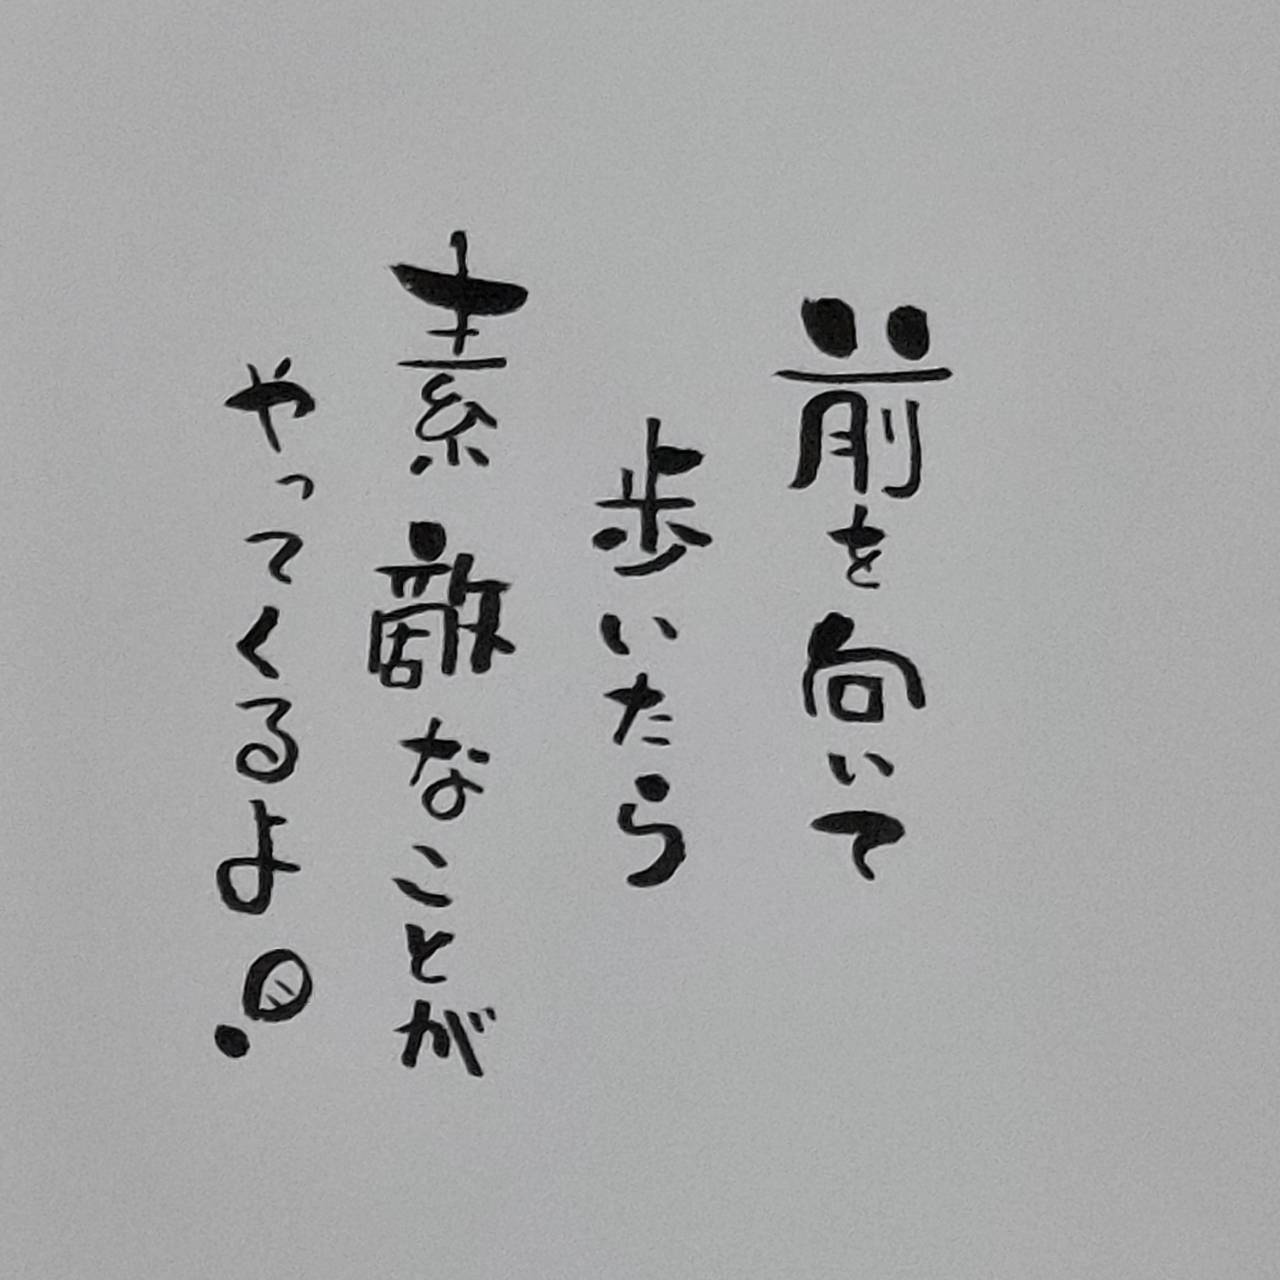 前を向いて
歩いたら
素敵なことが
やってくるよ!